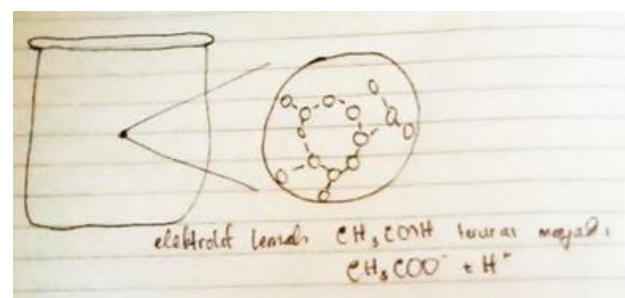 elektrolit lemah CH₃COOH terurai menjadi
CH₃COO⁻ + H⁺